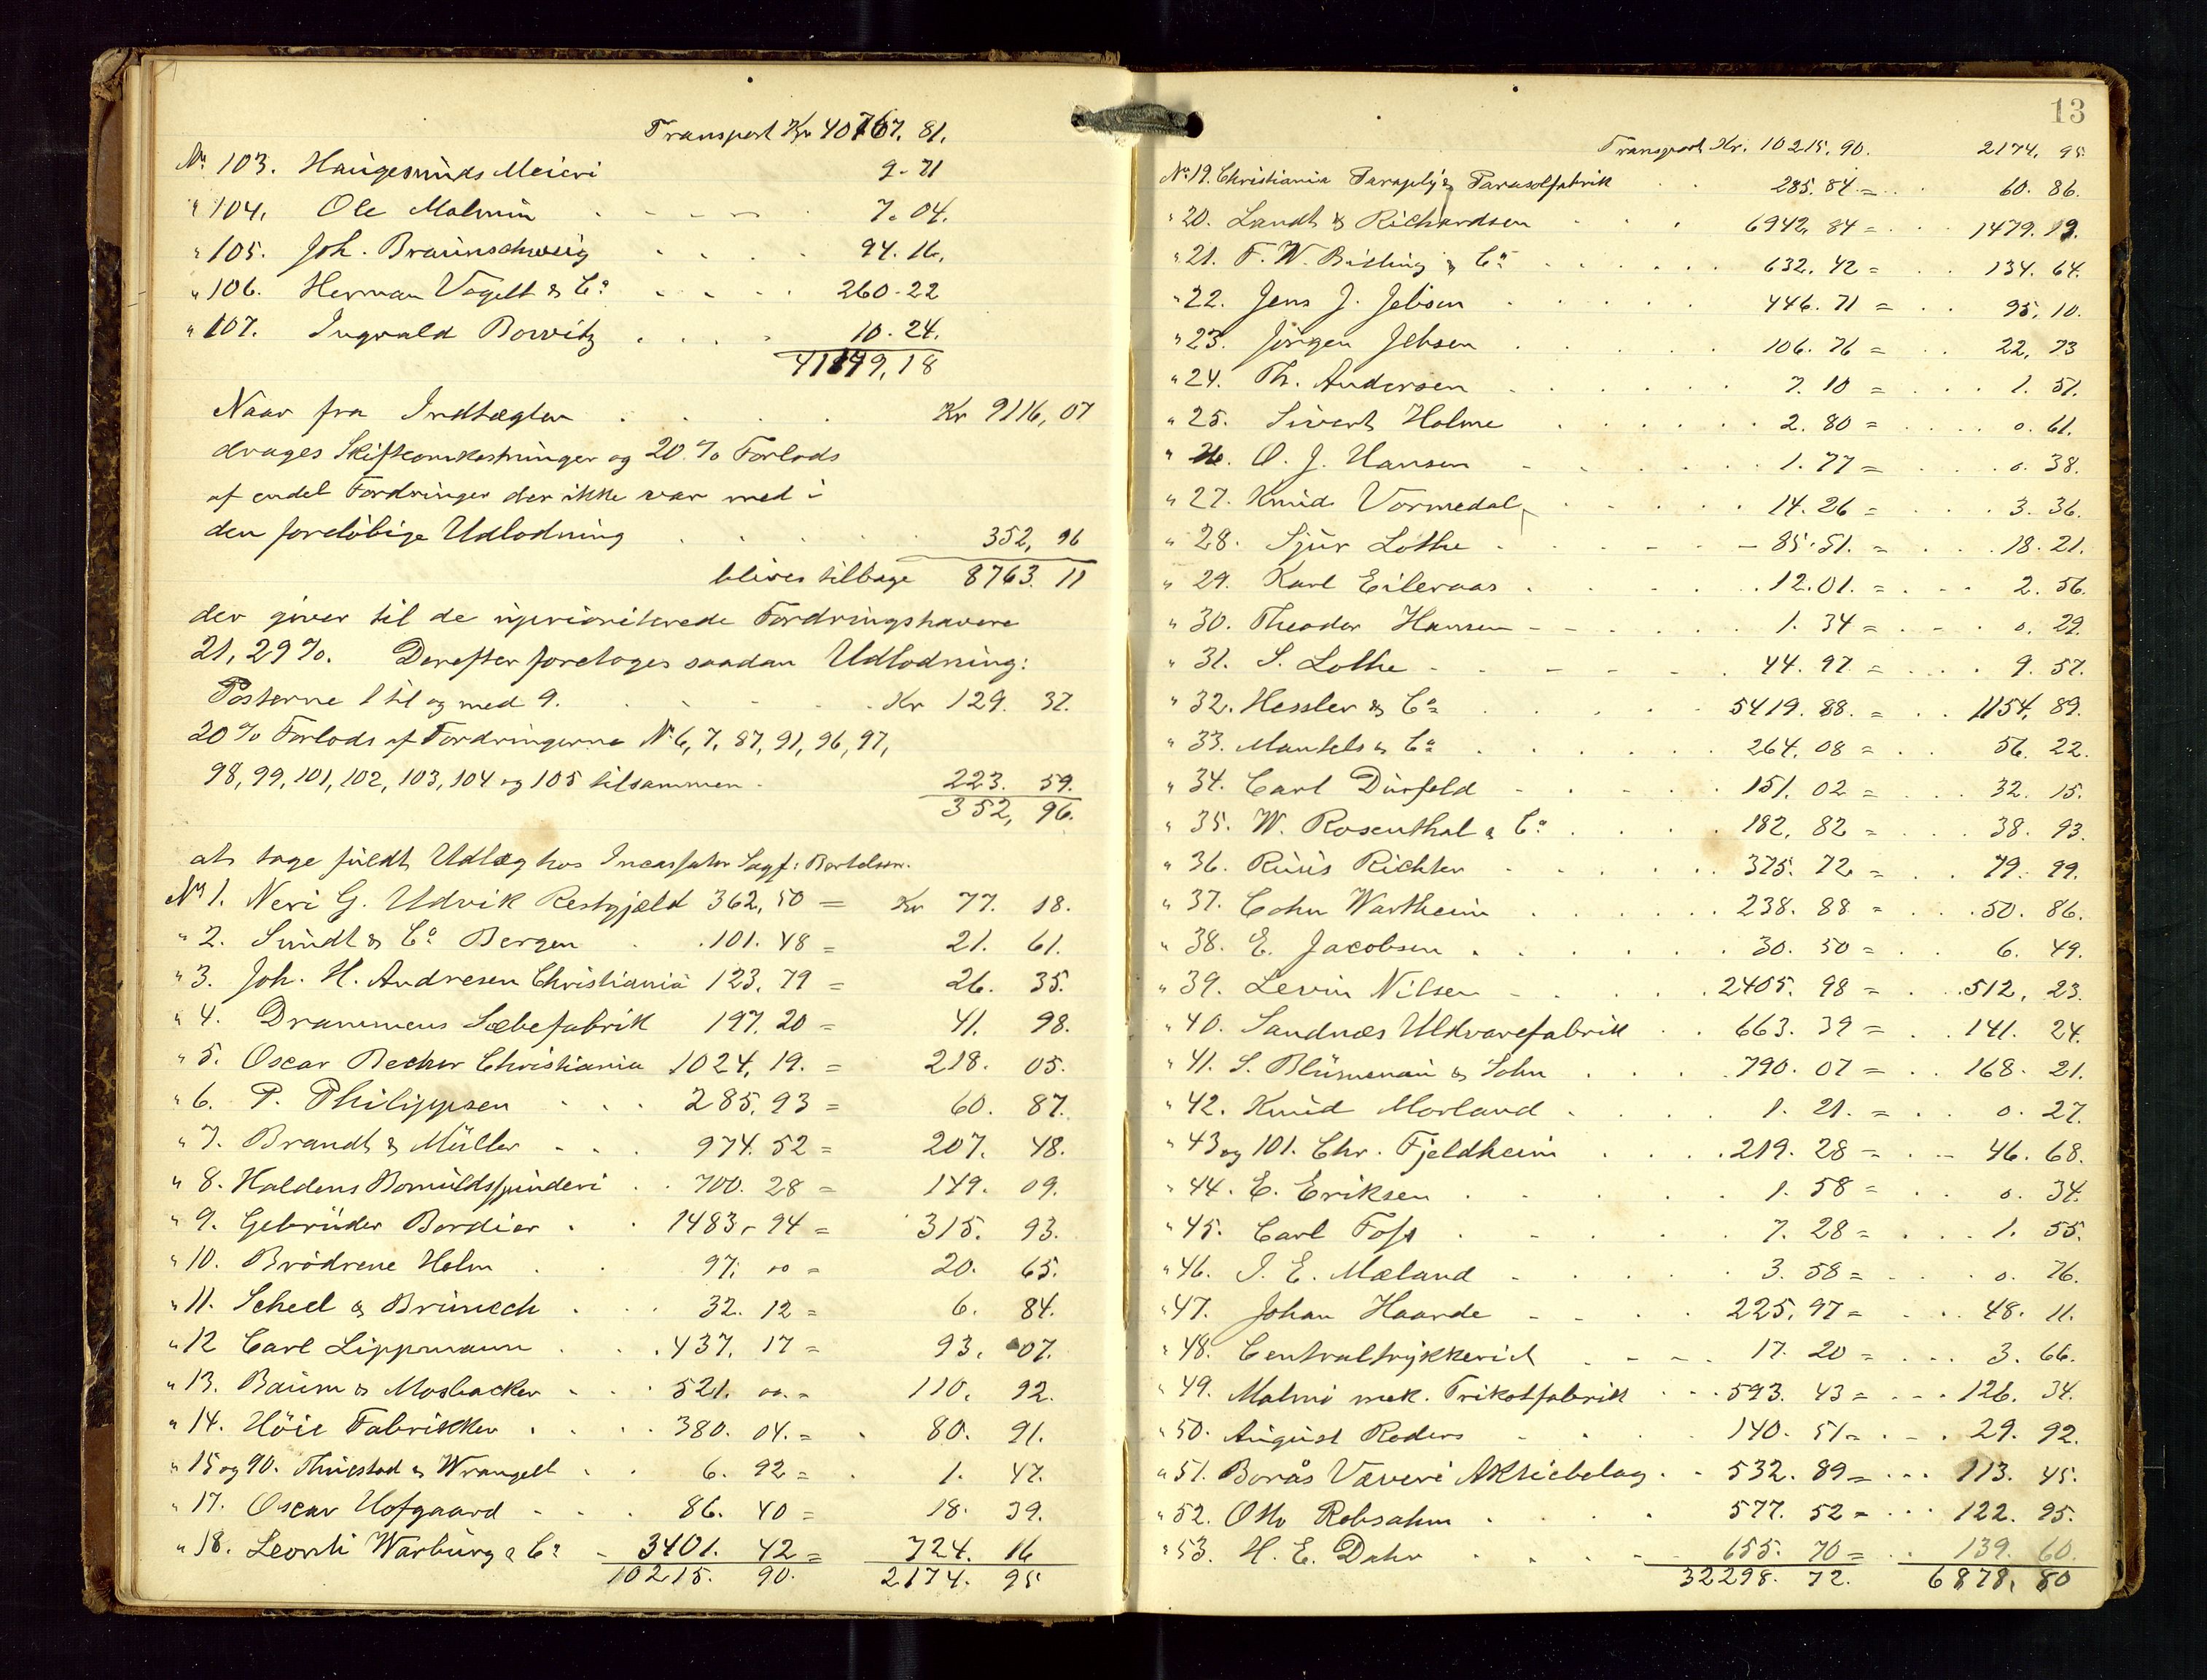 Transport Kr 40767. 81.
No 103. Haugesunds Meieri 9. 71
" 104. Ole Malmin 7. 04.
" 105. Joh. Braunschweig 94. 16.
" 106. Herman Vogelt & Co 260. 22
" 107. Ingvald Borvitz 10. 24.
41149,18
Naar fra Indtægten Kr 9116,07
drages Skifteomkostninger og 20 % Forlods
af endel Fordringer der ikke var med i
den foreløbige Udlodning 352, 96
blives tilbage 8763. 11
der giver til de uprioriterede Fordringshavere
21,29 %. Derefter foretages saadan Udlodning:
Posterne 1 til og med 9. Kr 129. 37.
20 % Forlods af Fordringerne No 6, 7, 87, 91, 96, 97,
98, 99, 101, 102, 103, 104 og 105 tilsammen 223. 59.
352, 96.
at tage fuldt Udlæg hos Incassator Sagf: Bertelsen.
No 1. Neri G. Udvik Restgjæld 362,50 = Kr 77. 18.
" 2. Sundt & Co Bergen 101. 48 = 21. 61.
" 3. Joh. H. Andresen Christiania 123. 79 = 26. 35.
" 4. Drammens Sæbefabrik 197. 20 = 41. 98.
" 5. Oscar Becker Christiania 1024. 19. = 218. 05.
" 6. P. Philippsen 285. 93 = 60. 87.
" 7. Brandt & Müller 974. 52 = 207. 48.
" 8. Haldens Bomuldsspinderi 700. 28 = 149. 09.
" 9. Gebrüder Bordier 1483. 94 = 315. 93.
" 10. Brødrene Holm 97. 00 = 20. 65.
" 11. Scheel & Brünech 32. 12 = 6. 84.
" 12 Carl Lippmann 437. 17 = 93. 07.
" 13. Baum & Mosbacker 521. 00. = 110. 92.
" 14. Høie Fabrikker 380. 04. = 80. 91.
" 15 og 90. Thuestad & Wrangell 6. 92 = 1. 47.
" 17. Oscar Hofgaard 86. 40 = 18. 39.
" 18. Leonti Warburg & Co 3401. 42 = 724. 16
10215. 90. 2174. 95
13
Transport Kr. 10215. 90. 2174. 95
No 19. Christiania Paraply & Parasolfabrik 285. 84 = 60. 86.
" 20. Landt & Richardsen 6942. 84 = 1479. 13.
" 21. F. W. Bitling & Co 632. 42 = 134. 64.
" 22. Jens J. Jebsen 446. 71 = 95. 10.
" 23. Jørgen Jebsen 106. 76 = 22. 73
" 24. Th. Andersen 7. 10 = 1. 51.
" 25. Sivert Holme 2. 80 = 0. 61.
" 26. O. J. Hansen 1. 77 = 0. 38.
" 27. Knud Vormedal 14. 26 = 3. 36.
" 28. Sjur Lothe 85. 51. = 18. 21.
" 29. Karl Eileraas 12. 01. = 2. 56.
" 30. Theodor Hansen 1. 34 = 0. 29.
" 31. S. Lothe 44. 97. = 9. 57.
" 32. Hessler & Co 5419. 88. = 1154. 89.
" 33. Mantels & Co 264. 08 = 56. 22.
" 34. Carl Dürfeld 151. 02 = 32. 15.
" 35. W. Rosenthal & Co 182. 82 = 38. 93.
" 36. Ruus Richter 375. 72 = 79. 99.
" 37. Cohn Wartheim 238. 88 = 50. 86.
" 38. E. Jacobsen 30. 50 = 6. 49.
" 39. Levin Nilsen 2405. 98 = 512. 23.
" 40. Sandnæs Uldvarefabrik 663. 39 = 141. 24.
" 41. S. Blumenau & Sohn 790. 07 = 168. 21.
" 42. Knud Morland 1. 21. = 0. 27.
" 43 og 101. Chr. Fjeldheim 219. 28 = 46. 68.
" 44. E. Eriksen 1. 58 = 0. 34.
" 45. Carl Foss 7. 28 = 1. 55.
" 46. I. E. Mæland 3. 58 = 0. 76.
" 47. Johan Haarde 225. 97 = 48. 11.
" 48. Centraltrykkeriet 17. 20 = 3. 66.
" 49. Malmö mek. Trikotfabrik 593. 43 = 126. 34.
" 50. August Roders 140. 51 = 29. 92.
" 51. Borås Väveri Aktiebolag 532. 89 = 113. 45.
" 52. Otto Robsahm 577. 52 = 122. 95.
" 53. H. E. Dahr 655. 70 = 139. 60.
32298. 72. 6878. 80